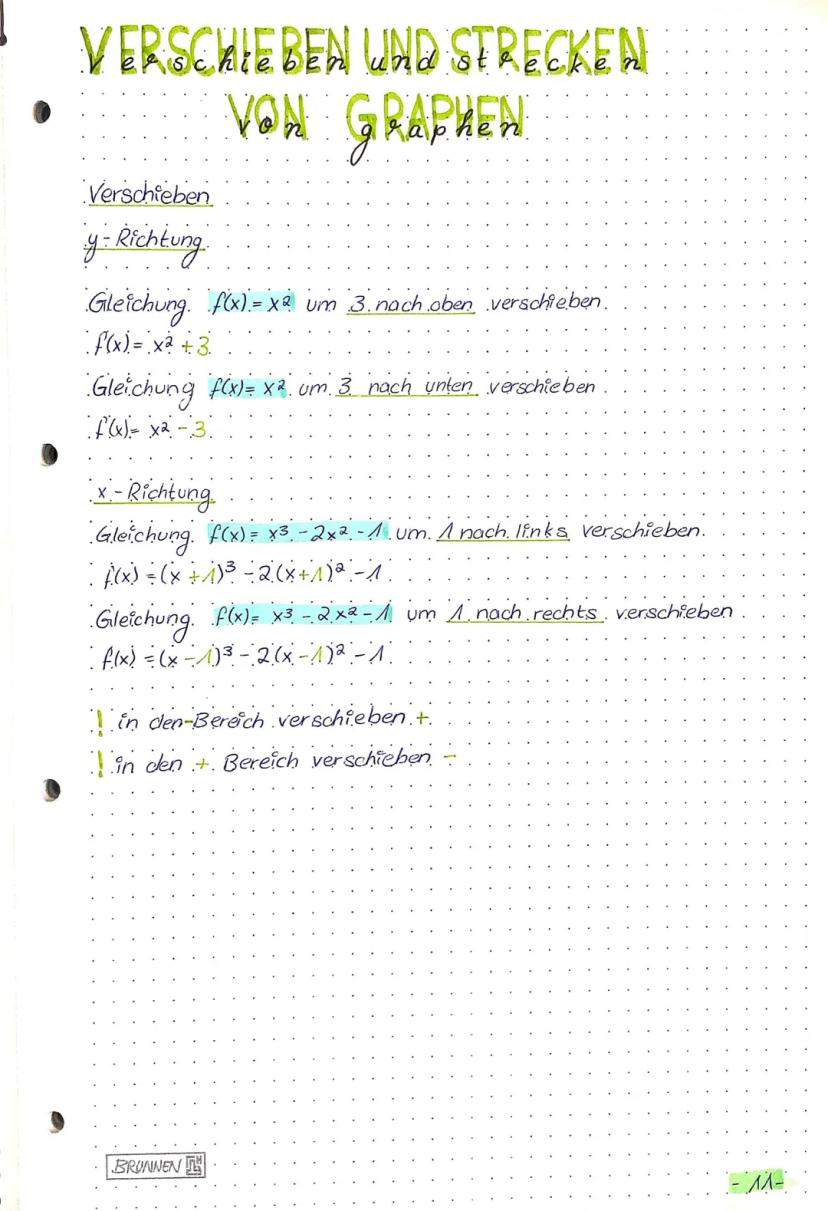 VERSCHIEBEN UND STRECKEN
VON GRAPHEN
Verschieben
y-Richtung
Gleichung f(x) = x² um 3 nach oben verschieben.
f(x) = x² + 3
Gleichung f(x) = x² um 3 nach unten verschieben
f(x) = x² - 3
x-Richtung
Gleichung f(x) = x³ - 2x² - 1 um 1 nach links verschieben.
f(x) = (x + 1)³ - 2(x + 1)² - 1
Gleichung f(x) = x³ - 2x² - 1 um 1 nach rechts verschieben
f(x) = (x - 1)³ - 2(x - 1)² - 1
! in den - Bereich verschieben +
! in den + Bereich verschieben -
BRUNNEN
- 11 -